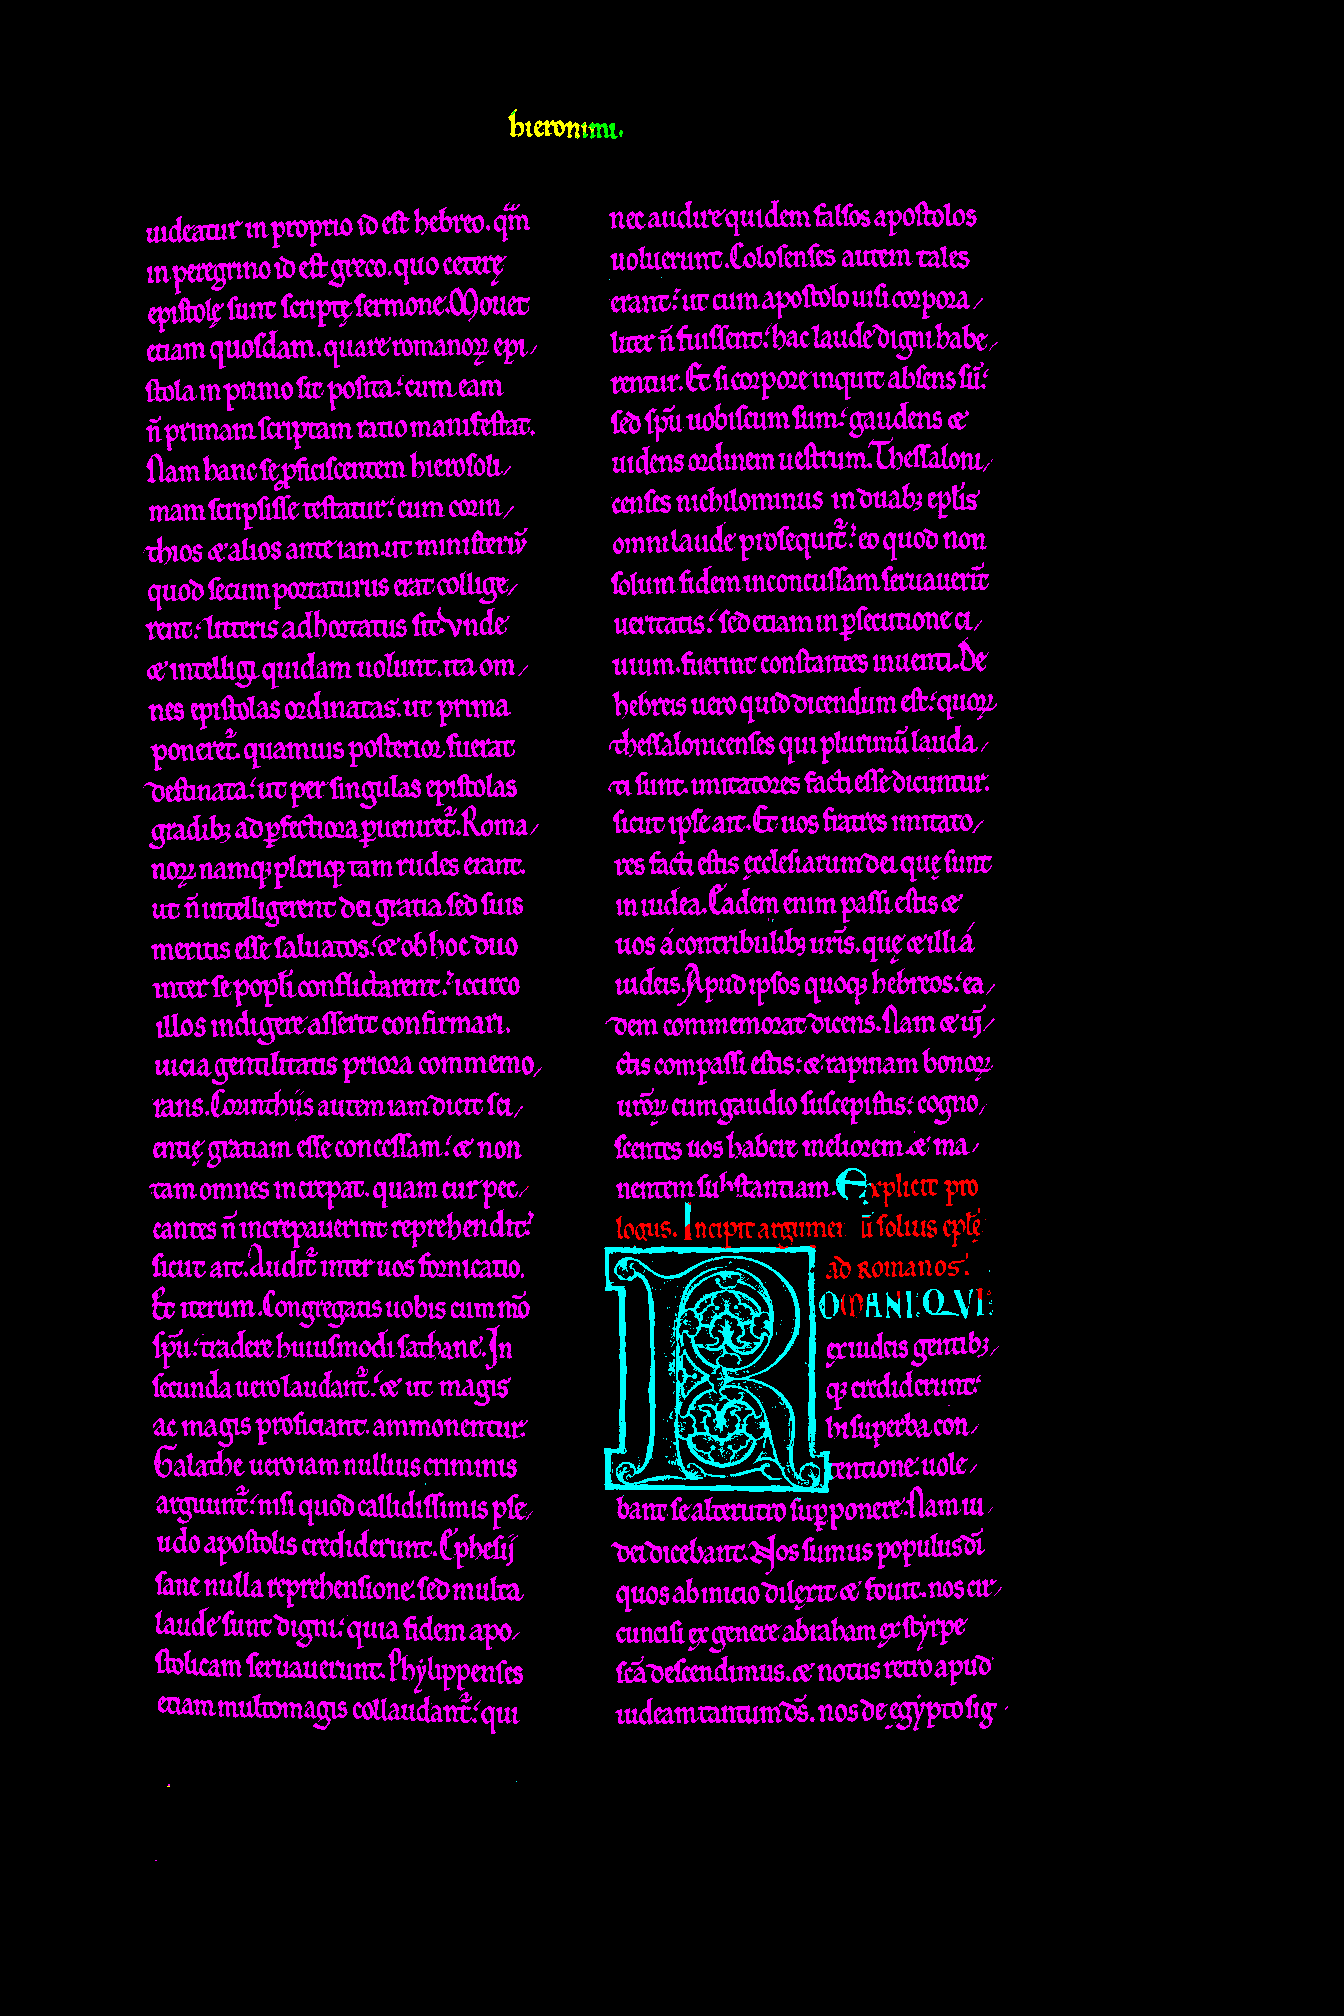 hieronimi.
uideatur in proprio id est hebreo. qm̅
in peregrino id est greco. quo ceterę
epistolę sunt scriptę sermone. Mouet
etiam quosdam. quare romanoꝝ epi/
stola in primo sit posita. cum eam
n̅ primam scriptam ratio manifestat.
Nam hanc se ꝓficiscentem hierosoli/
mam scripsisse testatur. cum corin/
thios & alios ante iam. ut ministeriu̅
quod secum portaturus erat collige/
rent. litteris adhortatus sit. Vnde
& intelligi quidam uolunt. ita om/
nes epistolas ordinatas. ut prima
poneret᷑. quamuis posterior fuerat
destinata. ut per singulas epistolas
gradib; ad ꝑfectiora ꝑueniret᷑. Roma/
noꝝ namq; pleriq; tam rudes erant.
ut n̅ intelligerent dei gratia sed suis
meritis esse saluatos. & ob hoc duo
inter se popl̅i conflictarent. iccirco
illos indigere asserit confirmari.
uicia gentilitatis priora commemo/
rans. Corinthiis autem iam dicit sci/
entię gratiam esse concessam. & non
tam omnes increpat. quam cur pec/
cantes n̅ increpauerint reprehendit.
sicut ait. Audit᷑ inter uos fornicatio.
Et iterum. Congregatis uobis cum m̅o
sp̅u. tradere huiusmodi sathanę. In
secunda uero laudant᷑. & ut magis
ac magis proficiant. ammonentur.
Galathę uero iam nullius criminis
arguunt᷑. nisi quod callidissimis pse/
udo apostolis crediderunt. Ephesij
sane nulla reprehensione. sed multa
laude sunt digni. quia fidem apo/
stolicam seruauerunt. Phylippenses
etiam multo magis collaudant᷑. qui
nec audire quidem falsos apostolos
uoluerunt. Colosenses autem tales
erant. ut cum apostolo uisi corpora/
liter n̅ fuissent. hac laude digni habe/
rentur. Et si corpore inquit absens su̅.
sed sp̅u uobiscum sum. gaudens &
uidens ordinem uestrum. Thessaloni/
censes nichilominus in duab; epl̅is
omni laude prosequit᷑. eo quod non
solum fidem inconcussam seruauerin̅t
ueritatis. sed etiam in ꝑsecutione ci/
uium. fuerint constantes inuenti. De
hebreis uero quid dicendum est. quoꝝ
thessalonicenses qui plurimu̅ lauda/
ti sunt. imitatores facti esse dicuntur.
sicut ipse ait. Et uos fratres imitato/
res facti estis ęcclesiarum dei quę sunt
in iudea. Eadem enim passi estis &
uos á contribulib; ur̅is. quę & illi á
iudeis. Apud ipsos quoq; hebreos. ea/
dem commemorat dicens. Nam & uj̅/
ctis compassi estis. & rapinam bonoꝝ
ur̅oꝝ cum gaudio suscepistis. cogno/
scentes uos habere meliorem & ma/
nentem substantiam. Explicit pro
logus. Incipit argum̅ solius epl̅ę
ad romanos.
ROMANI. QVI.
ex iudeis gentib;/
q; crediderunt.
hi superba con/
tentione. uole/
bant se alterutro supponere. Nam iu/
dei dicebant. Nos sumus populus di̅
quos ab inicio dilexit & fouit. nos cir/
cuncisi ex genere abraham ex styrpe
sc̅a descendimus. & notus retro apud
iudeam tantum d̅s. nos de egypto sig